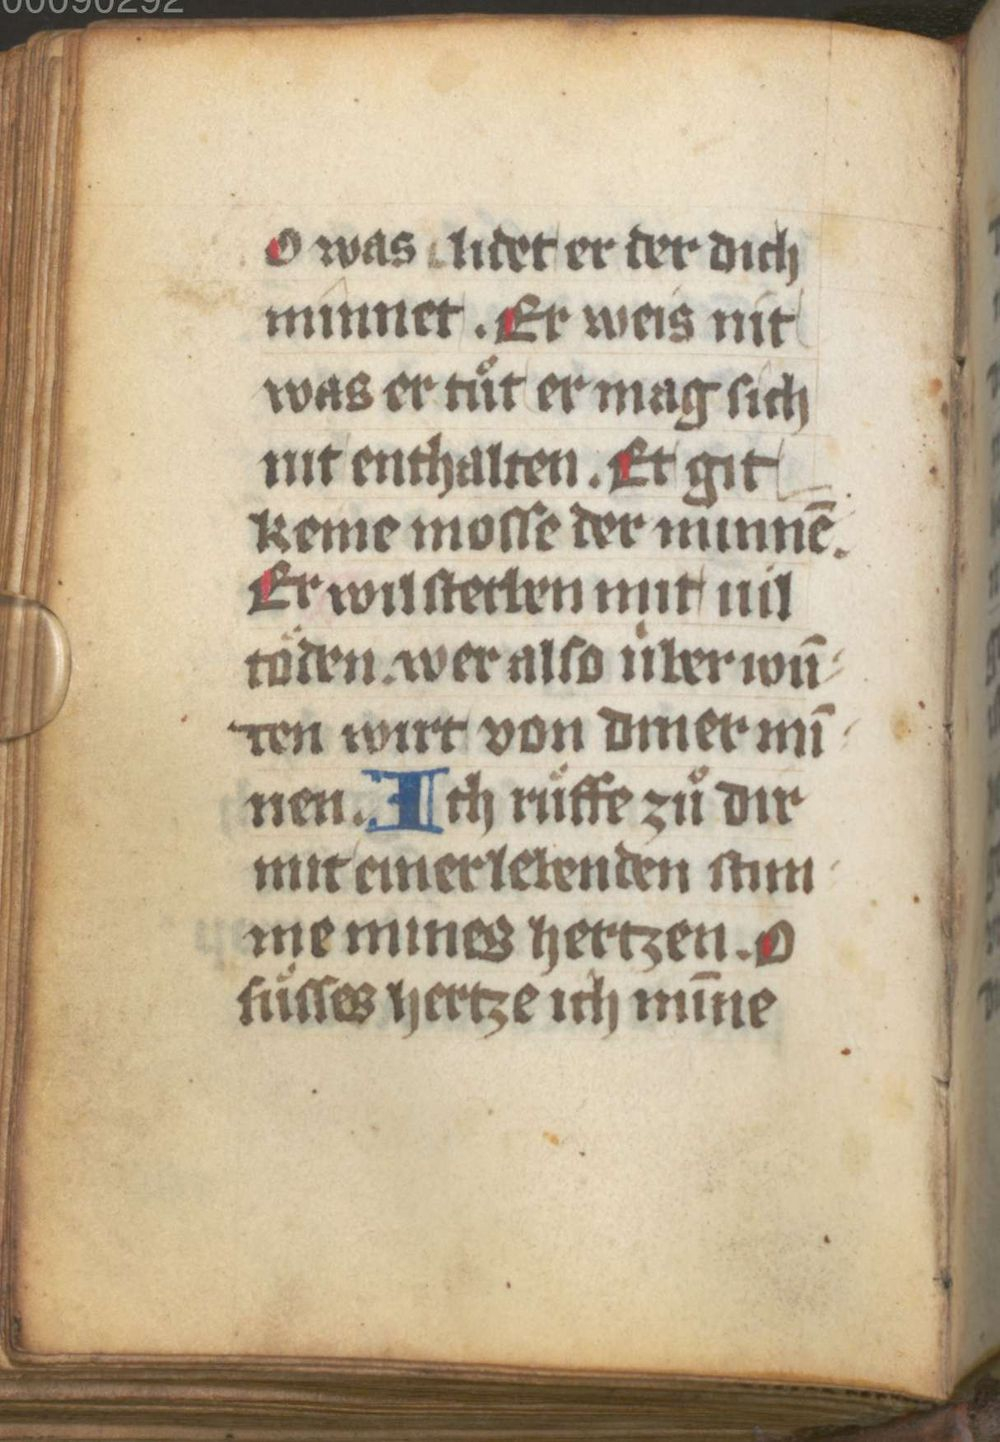 00090292
O was lidet er der dich
minnet . Er weis nit
was er tuͦt er mag sich
nit enthalten . Et git
keine mosse der minnē.
Er wil sterben mit uil
töden. wer also über wū
den wirt von diner mī
nen. Ich rüffe zuͦ dir
mit einer lebenden stim
me mines hertzen. O
süsses hertze ich mīne